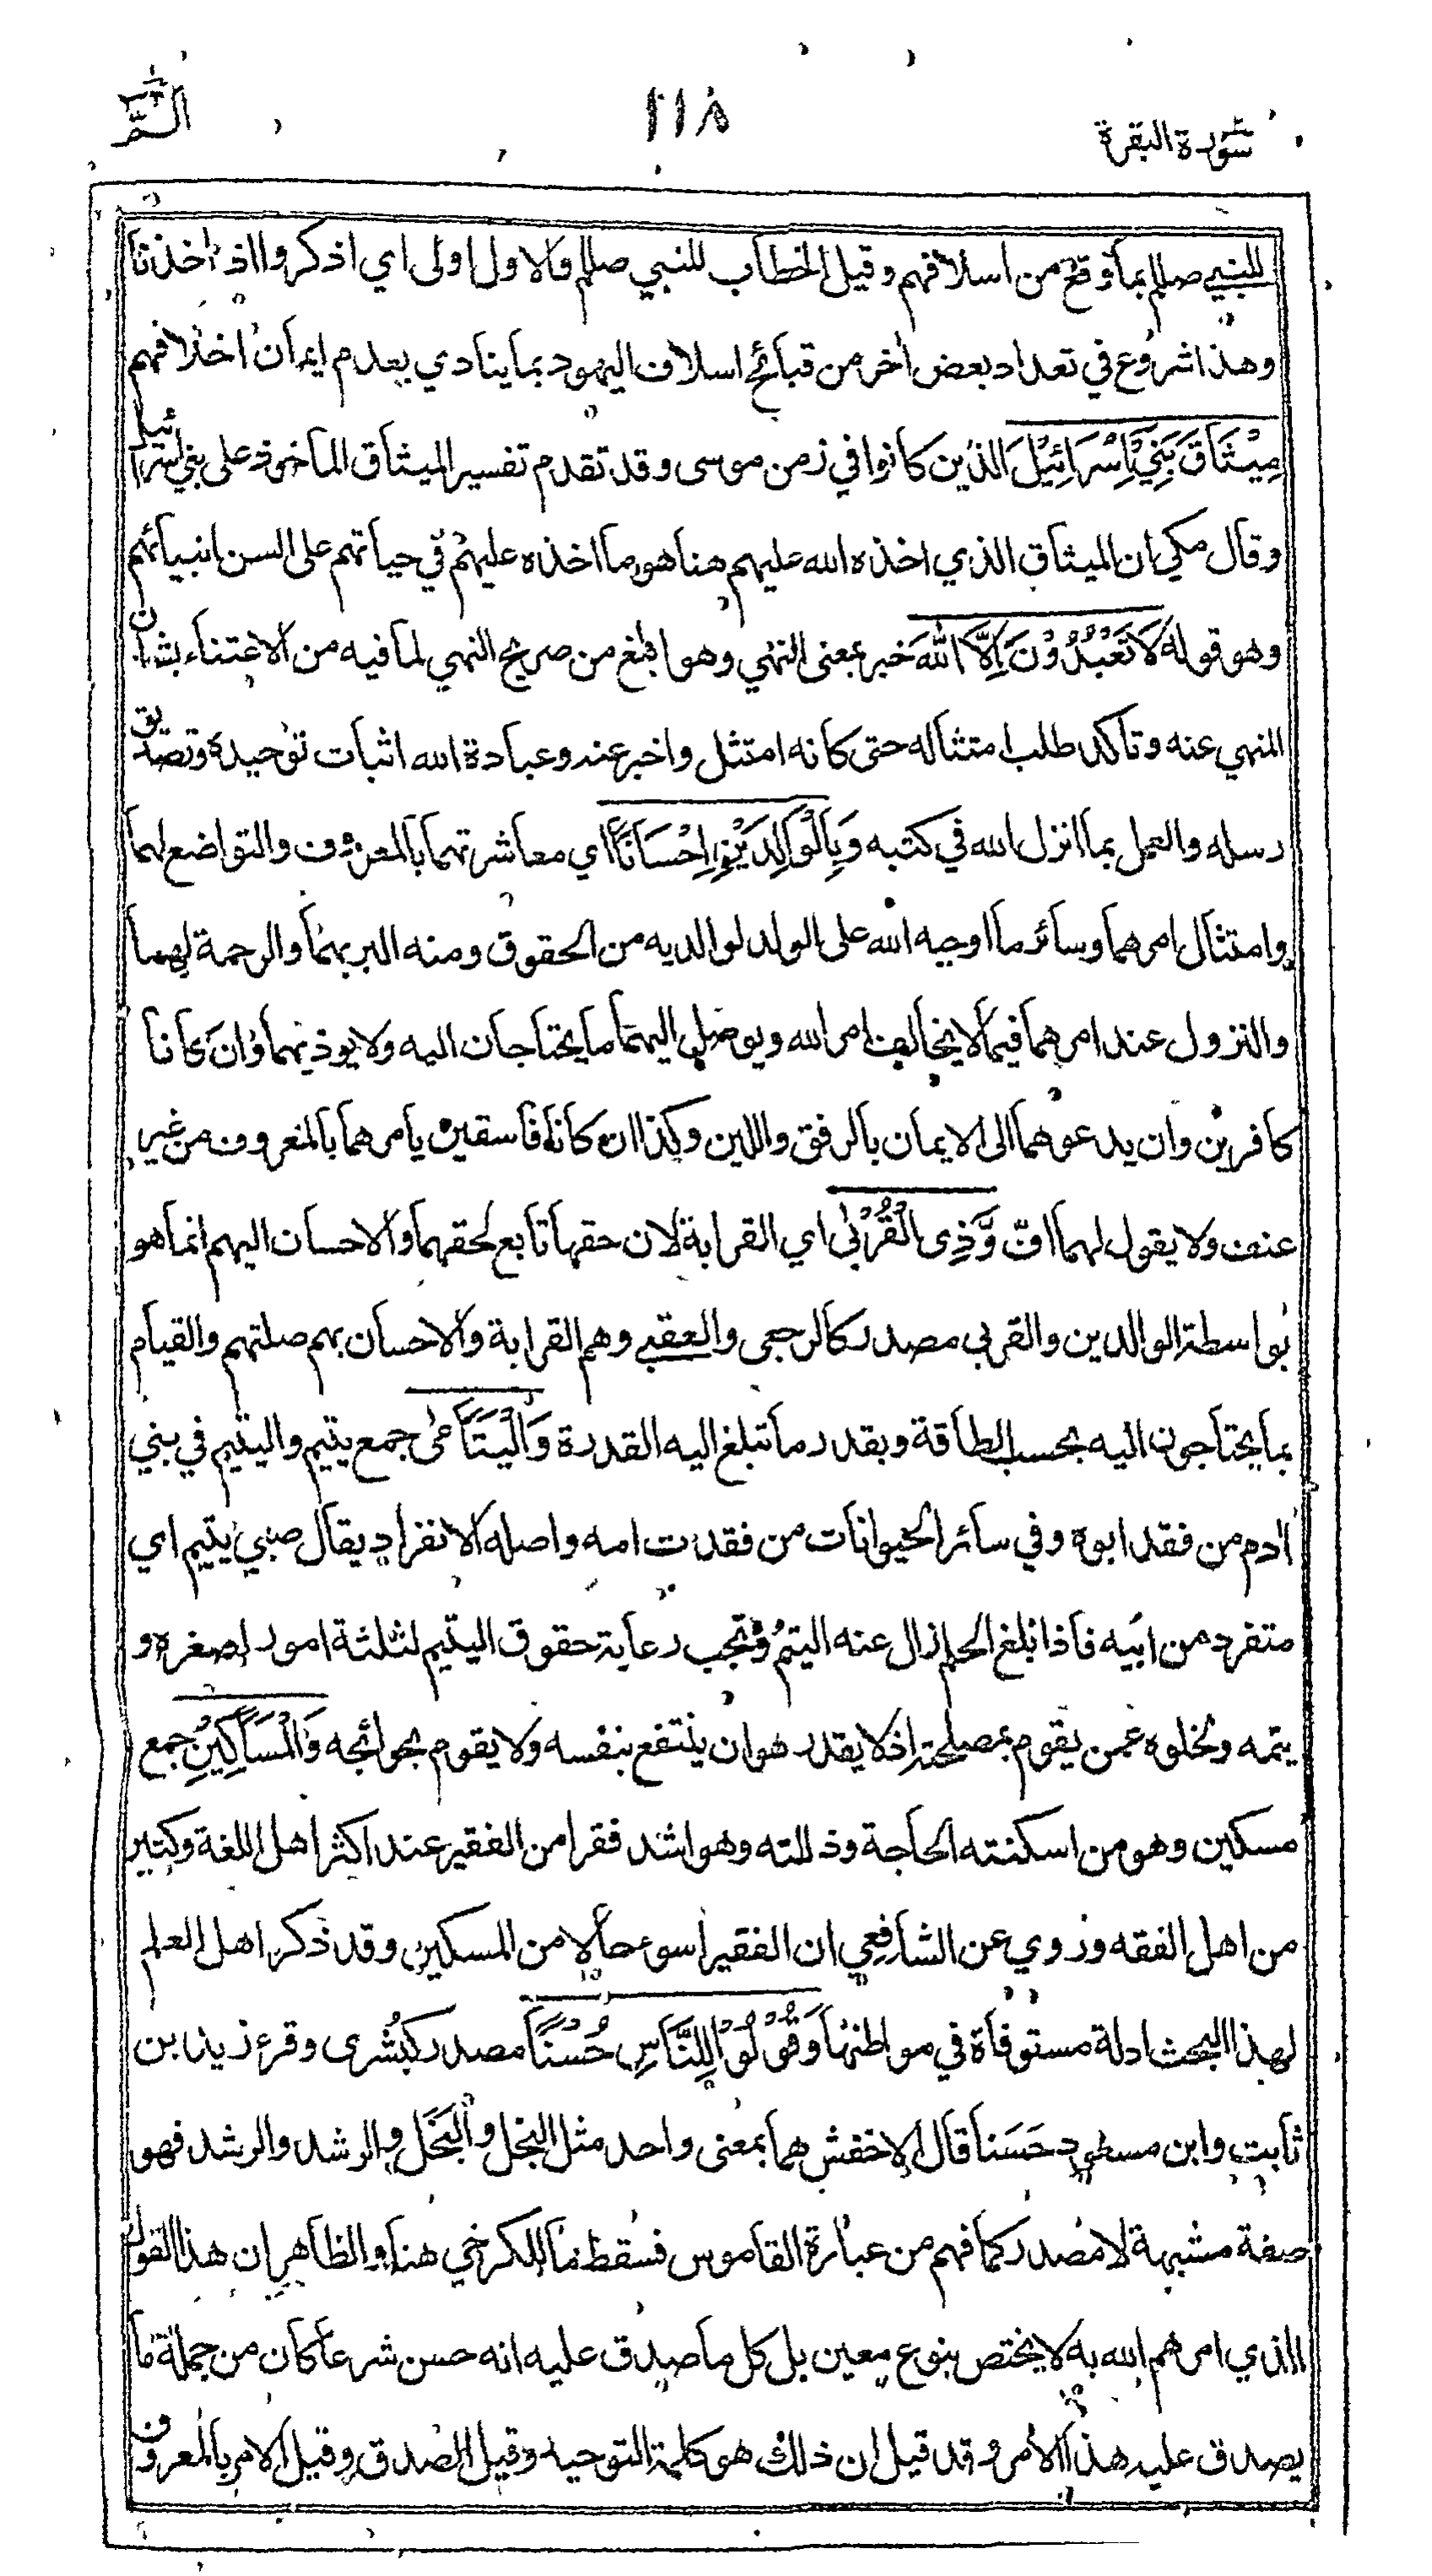 سورة البقرة
١١٨
الٓمّٓ
للنبي صللم بما وقع من اسلافهم وقيل الخطاب للنبي صللم والاول اولى اي اذكروا اذ اخذنا
وهذا شروع في تعداد بعض اخر من قبائح اسلاف اليهود بما ينادي بعدم ايمان اخلافهم
مِيْثَاقَ بَنِيْٓ اِسْرَائِيْلَ الذين كانوا في زمن موسى وقد تقدم تفسير الميثاق الماخوذ على بني اسرائيل
وقال مكي ان الميثاق الذي اخذه الله عليهم هنا هو ما اخذه عليهم في حياتهم على السن انبيائهم
وهو قوله لَا تَعْبُدُوْنَ اِلَّا اللّٰهَ خبر بمعنى النهي وهو ابلغ من صريح النهي لما فيه من الاعتناء بشان
المنهي عنه وتاكد طلب امتثاله حتى كانه امتثل واخبر عنه وعبادة الله اثبات توحيده وتصديق
رسله والعمل بما انزل الله في كتبه وَبِالْوَالِدَيْنِ اِحْسَانًا اي معاشرتهما بالمعروف والتواضع لهما
وامتثال امرهما وسائر ما اوجبه الله على الولد لوالديه من الحقوق ومنه البر بهما والرحمة لهما
والنزول عند امرهما فيما لا يخالف امر الله ويوصل اليهما ما يحتاجان اليه ولا يوذيهما وان كانا
كافرين وان يدعوهما الى الايمان بالرفق واللين وكذا ان كانا فاسقين يامرهما بالمعروف من غير
عنف ولا يقول لهما افّ وَّذِى الْقُرْبٰى اي القرابة لان حقها تابع لحقهما والاحسان اليهم انما هو
بواسطة الوالدين والقربى مصدر كالرجعى والعقبى وهم القرابة والاحسان بهم صلتهم والقيام
بما يحتاجون اليه بحسب الطاقة وبقدر ما تبلغ اليه القدرة وَالْيَتَامٰى جمع يتيم واليتيم في بني
ادم من فقد ابوه وفي سائر الحيوانات من فقدت امه واصله الانفراد يقال صبي يتيم اي
منفرد من ابيه فاذا بلغ الحلم زال عنه اليتم وتجب رعاية حقوق اليتيم لثلثة امور لصغره و
يتمه وخلوه عمن يقوم بمصلحته اذ لا يقدر هو ان ينتفع بنفسه ولا يقوم بحوائجه وَالْمَسَاكِيْنِ جمع
مسكين وهو من اسكنته الحاجة وذللته وهو اشد فقرا من الفقير عند اكثر اهل اللغة وكثير
من اهل الفقه وروي عن الشافعي ان الفقير اسوء حالا من المسكين وقد ذكر اهل العلم
لهذا البحث ادلة مستوفاة في مواطنها وَقُوْلُوْا لِلنَّاسِ حُسْنًا مصدر كبُشرى وقرء زيد بن
ثابت وابن مسعود حَسَنا قال الاخفش هما بمعنى واحد مثل البخل والبَخَل والرشد والرشد فهو
صفة مشبهة لا مصدر كما فهم من عبارة القاموس فسقط ما للكرخي هنا والظاهر ان هذا القول
الذي امرهم الله به لا يختص بنوع معين بل كل ما صدق عليه انه حسن شرعا كان من جملة ما
يصدق عليه هذا الامر وقد قيل ان ذلك هو كلمة التوحيد وقيل الصدق وقيل الامر بالمعروف